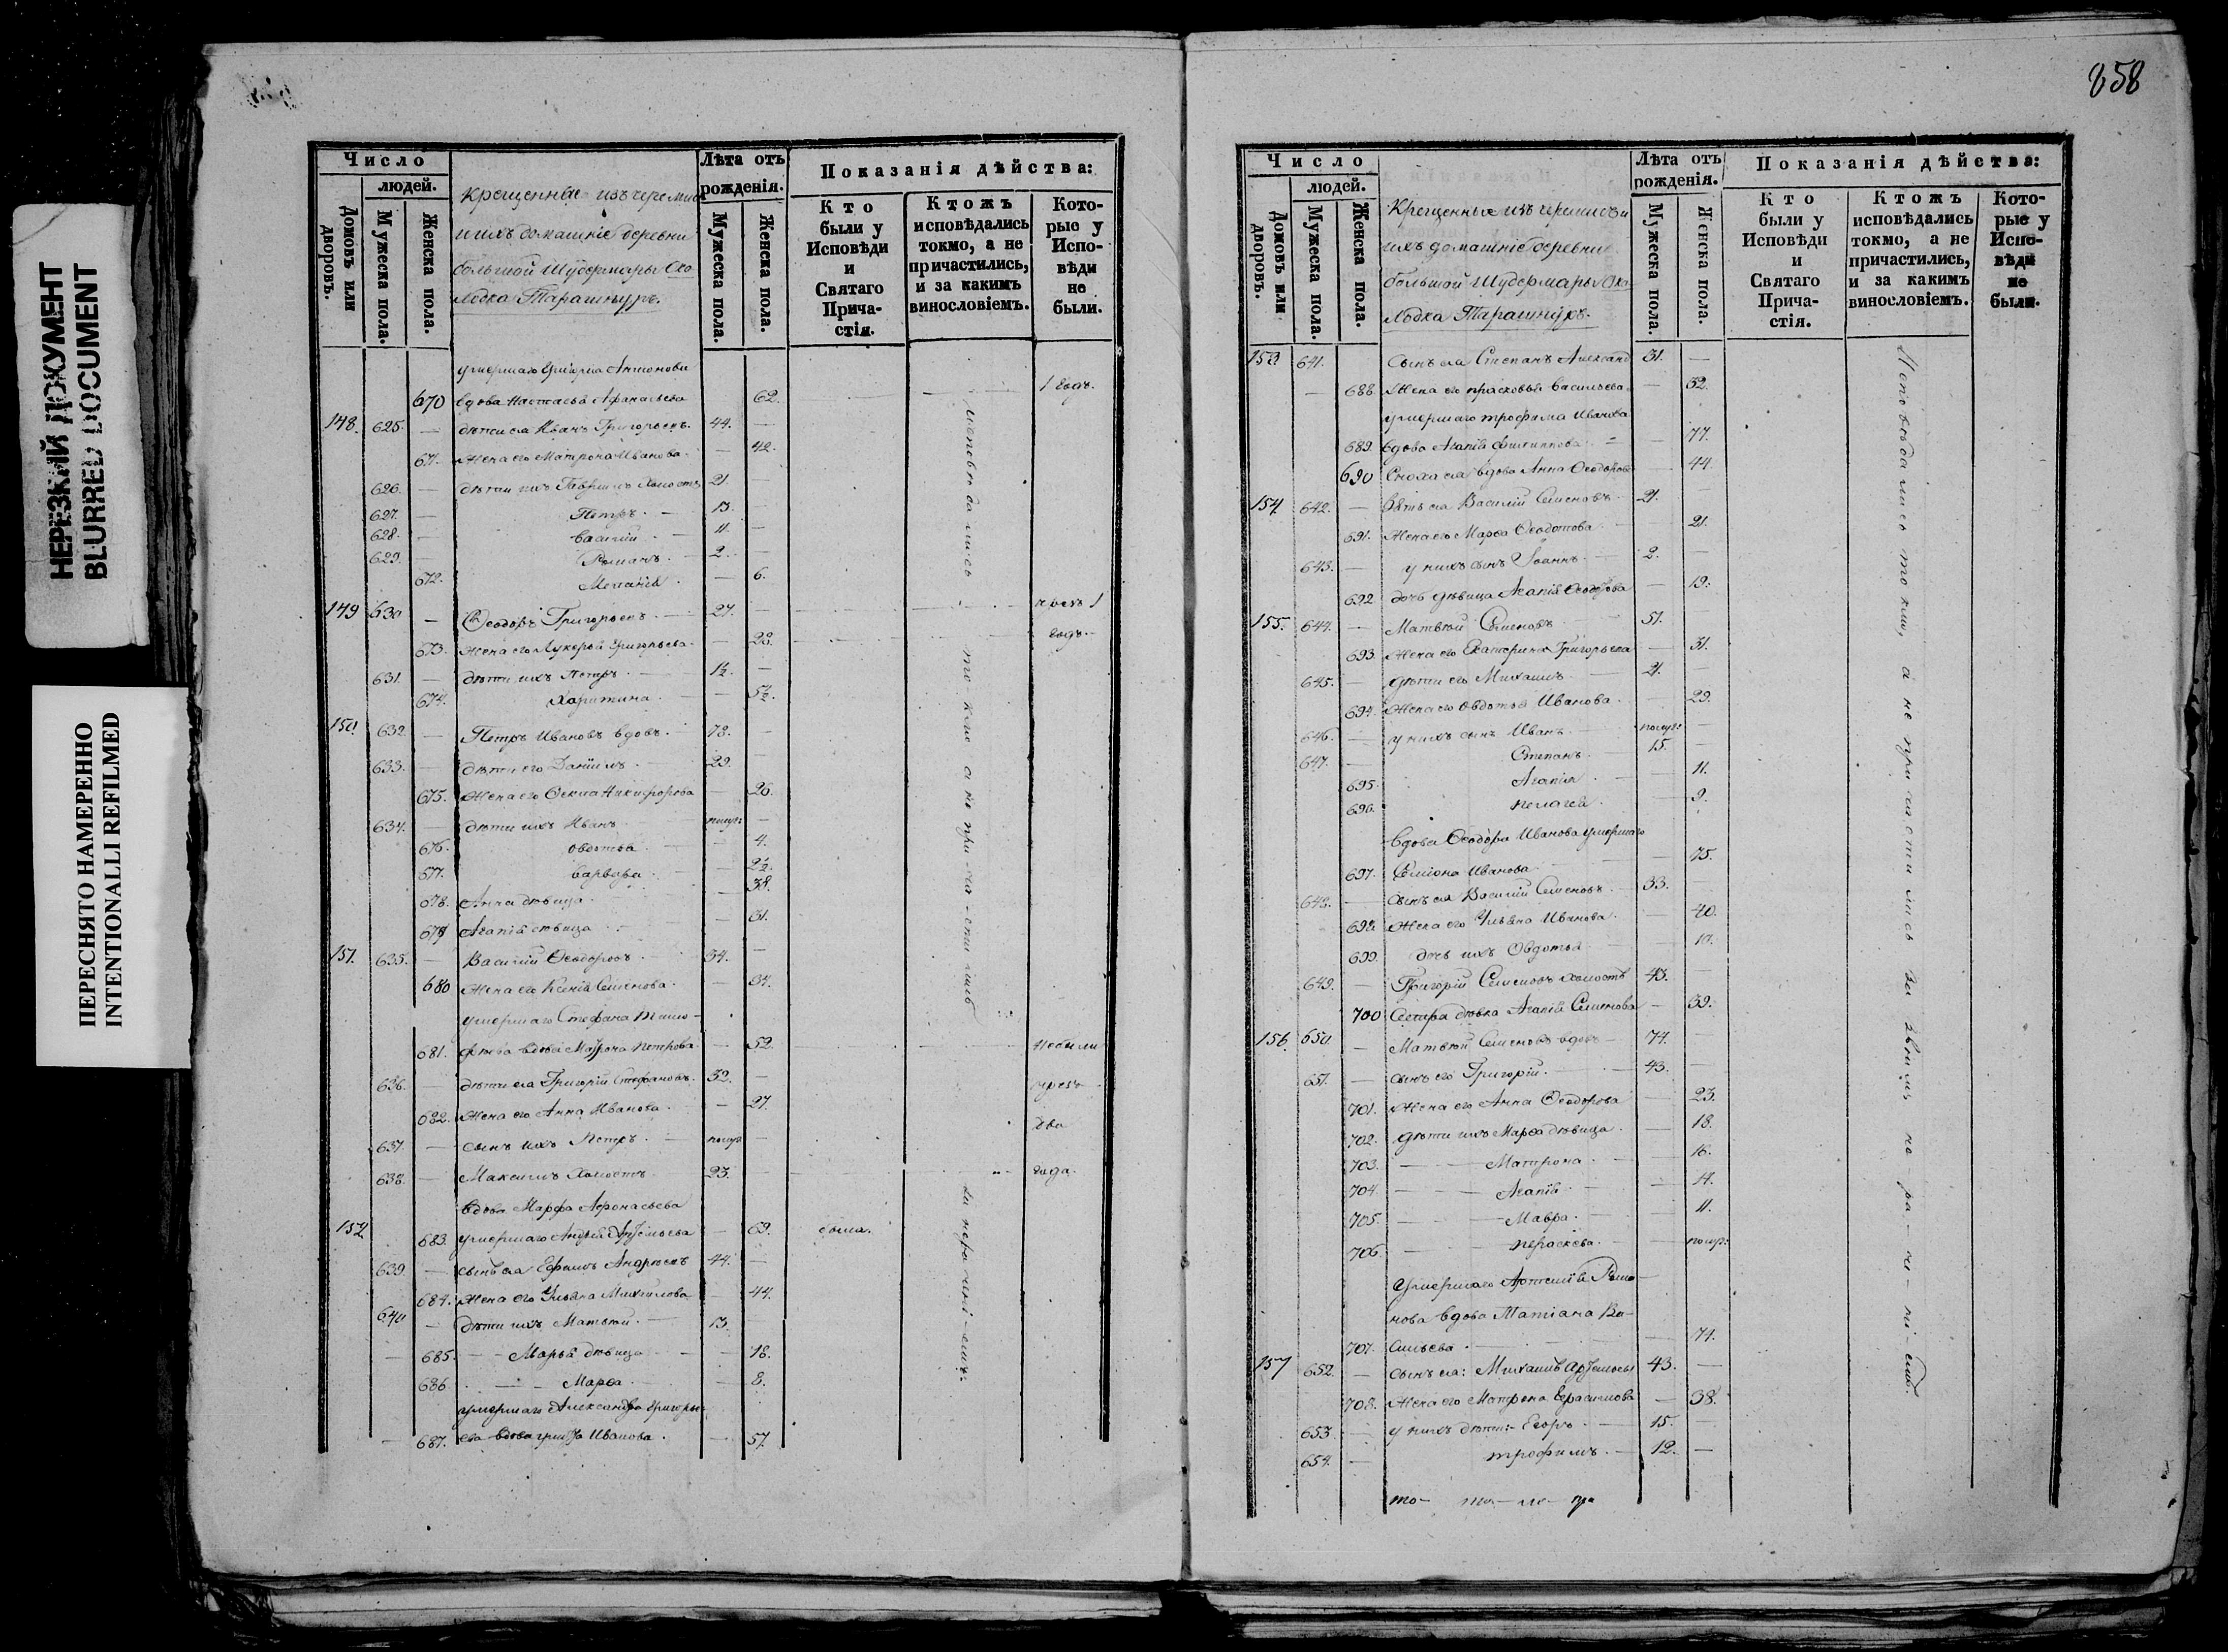 НЕРЕЗКИЙ ДОКУМЕНТ
BLURRED DOCUMENT
ПЕРЕСНЯТО НАМЕРЕННО
INTENTIONALLI REFILMED
Число
людей.
Домовъ или дворовъ.
Мужеска пола.
Женска пола.
Крещенные изъ черемисъ
и ихъ домашніе деревни
большой Шудермары Око
лодка Тарашнуръ.
Лѣта отъ рожденія.
Мужеска пола.
Женска пола.
Показанія дѣйства:
Кто были у Исповѣди и Святаго Прича-стія.
Ктожъ исповѣдались токмо, а не причастились, и за какимъ винословіемъ.
Кото-рые у Испо-вѣди не были.
умершаго Григорья Антонова
670 вдова Настасья Афанасьева 62. 1 годъ.
148. 625. — дѣти ея Иванъ Григорьевъ. 44. —
671. Жена его Матрона Иванова — 42.
626. — дѣти ихъ Гаврилъ Холостъ 21. —
627. — Петръ. — 13. —
628. — Василій. — 11. —
629. — Романъ. — 2. —
672. Меланія. — 6.
149 630 — Ѳеодоръ Григорьевъ — 27. — чрезъ 1
673. Жена его Лукерья Григорьева — 28. годъ.
631. — дѣти ихъ Петръ. — 1½. —
674. Харитина. — 5½.
150 632. — Петръ Ивановъ вдовъ. — 78. —
633. — дѣти его Даніилъ. — 29. —
675. Жена его Ѳекла Никифорова — 26.
634. — дѣти ихъ Иванъ полуг. —
676. Овдотья. — 4.
677. Варвара. — 2½.
678. Анна дѣвица. — 38.
679 Агапія дѣвица — 31.
151. 635. — Василій Ѳеодоровъ — 34. —
680 Жена его Ксенія Семенова. — 34.
умершаго Стефана Тимо-
681. фѣева вдова Матрона Петрова — 52. небыли
636. — дѣти ея Григорій Стефановъ. 32. — чрезъ
682. Жена его Анна Иванова. — 27. два
637. — сынъ ихъ Петръ. — полуг. —
638. — Максимъ Холостъ 23. — года.
вдова Марфа Афонасьева
152 683. умершаго Андрея Артемьева — 69. была.
639. — сынъ ея Ефимъ Андреевъ 44. —
684. Жена его Ульяна Михайлова — 44.
640 — дѣти ихъ Матвѣй. — 13. —
— 685. — Марья дѣвица — 18.
686 — Марѳа. — 8.
умершаго Александра Григорье-
— 687. ва вдова Иванова. — 57.
исповѣдались токмо а не при-ча-стились за нерачені-емъ.
858
Число
людей.
Домовъ или дворовъ.
Мужеска пола.
Женска пола.
Крещенные изъ черемисъ и
ихъ домашніе деревни
большой Шудермары Око
лодка Тарашнуръ.
Лѣта отъ рожденія.
Мужеска пола.
Женска пола.
Показанія дѣйства:
Кто были у Исповѣди и Святаго Прича-стія.
Ктожъ исповѣдались токмо, а не причастились, и за какимъ винословіемъ.
Кото-рые у Испо-вѣди не были.
153 641. сынъ ея Степанъ Александ 31. —
— 688. Жена его Прасковья Васильева — 32.
умершаго Трофима Иванова
689. вдова Агапія Филиппова — 77.
690 Сноха ея вдова Анна Ѳеодорова — 44.
154 642. — Зять ея Василій Семеновъ — 21. —
691. Жена его Марѳа Ѳеодотова — 21.
643. — у нихъ сынъ Іоаннъ. — 2. —
692 дочь дѣвица Агапія Ѳеодорова — 19.
155. 644. — Матвѣй Семеновъ — 51. —
693. Жена его Екатерина Григорьева — 31.
645. — дѣти его Михаилъ — 21. —
694. Жена его Овдотья Иванова. — 29.
646. — у нихъ сынъ Иванъ — полуг. —
647. — Степанъ. — 15. —
695. Агапія. — 11.
696. Пелагея. — 9.
вдова Ѳеодора Иванова умершаго
697. Семіона Иванова — 75.
648. — сынъ ея Василій Семеновъ. — 33. —
698. Жена его Ульяна Иванова. — 40.
699. дочь ихъ Овдотья — 10.
649. — Григорій Семеновъ холостъ 43. —
700 Сестра дѣвка Агапія Семенова — 39.
156. 650 — Матвѣй Семеновъ вдовъ — 74. —
651. — сынъ его Григорій. — 43. —
701. Жена его Анна Ѳеодорова — 23.
702. дѣти ихъ Марѳа дѣвица. — 18.
703. — Матрона. — 16.
704. — Агапія — 14.
705. — Мавра. — 11.
706. — Пераскева. — полуг.
умершаго Артемія Рома-
нова вдова Татіана Ва-
707. сильева — 74.
157 652. — сынъ ея: Михаилъ Артемьевъ 43. —
708. Жена его Матрена Герасимова — 38.
653. — у нихъ дѣти:- Егоръ. — 15. —
654. — Трофимъ. — 12. —
Исповѣдались токмо, а не причастились за своимъ не-ра-че-ні-емъ.